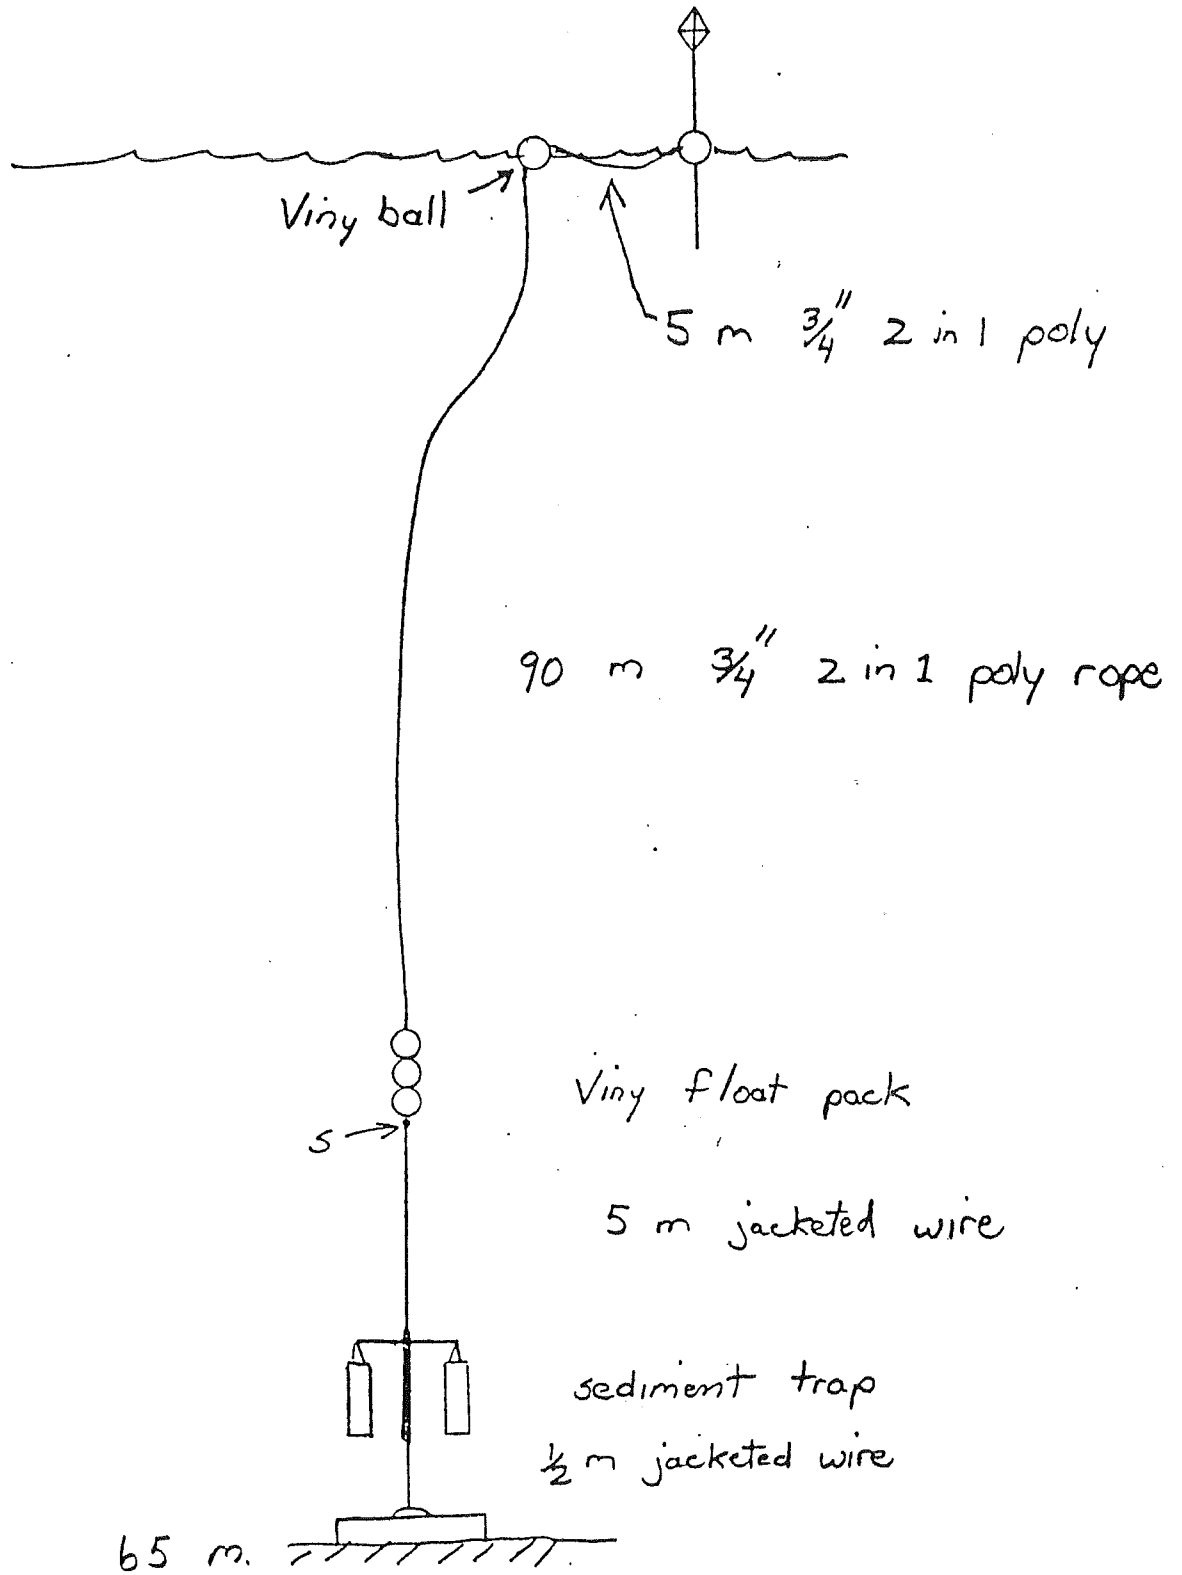 Viny ball
5 m 3/4" 2 in 1 poly
90 m 3/4" 2 in 1 poly rope
Viny float pack
S
5 m jacketed wire
sediment trap
1/2 m jacketed wire
65 m.